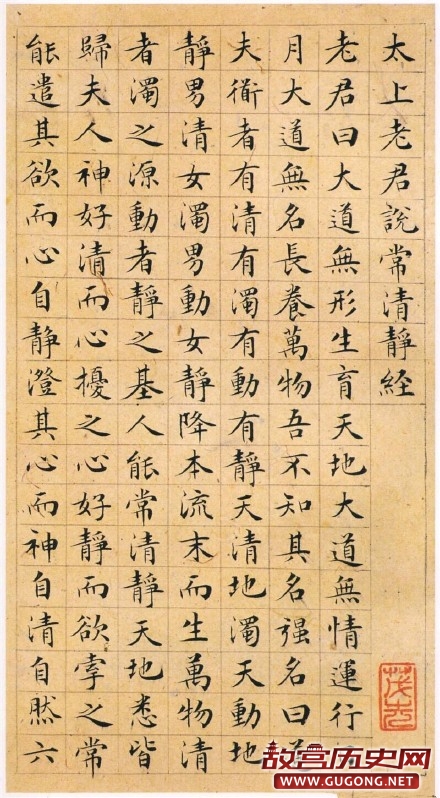 太上老君說常清靜経
老君曰大道無形生育天地大道無情運行
月大道無名長養萬物吾不知其名强名曰
夫衜者有清有濁有動有靜天清地濁天動地
靜男清女濁男動女靜降本流末而生萬物清
者濁之源動者靜之基人能常清靜天地悉皆
歸夫人神好清而心擾之心好靜而欲牽之常
能遣其欲而心自静澄其心而神自清自然六
故宫历史网
www.GUGONG.net